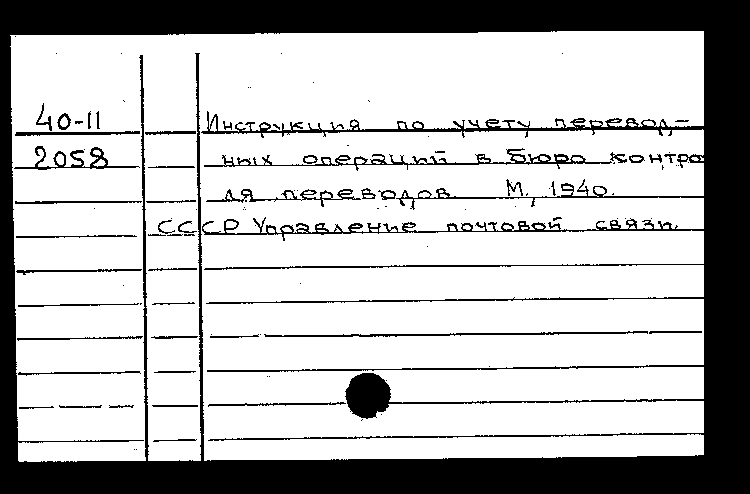 40-11 Инструкция по учету перевод-
2058 ных операций в бюро контро
ля переводов М, 1940.
СССР Управление почтовой связи.